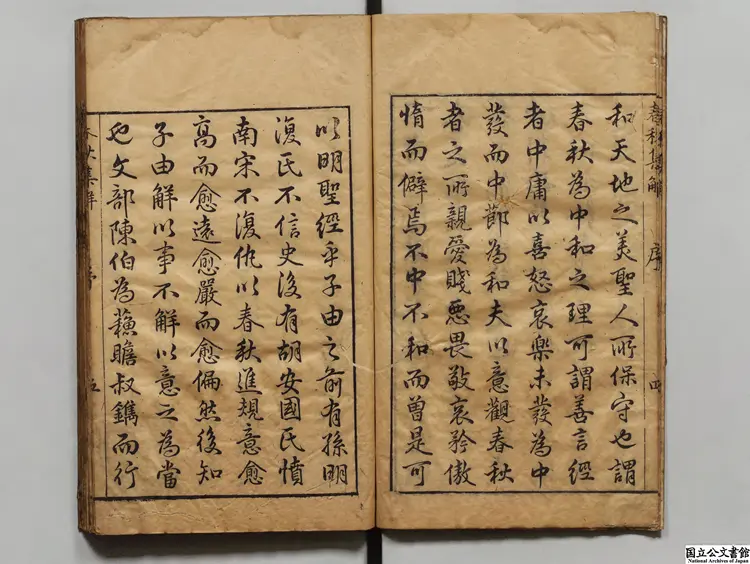 春秋集解 序 四
和天地之美聖人所保守也謂
春秋為中和之理可謂善言經
者中庸以喜怒哀樂未發為中
發而中節為和夫以意觀春秋
者之所親愛賤惡畏敬哀矜傲
惰而僻焉不中不和而曾是可
以明聖經乎子由之前有孫明
復氏不信史後有胡安國氏憤
南宋不復仇以春秋進規意愈
高而愈遠愈嚴而愈偏然後知
子由解以事不解以意之為當
也文部陳伯為蘓瞻叔鐫而行
春秋集解 序 五
国立公文書館
National Archives of Japan